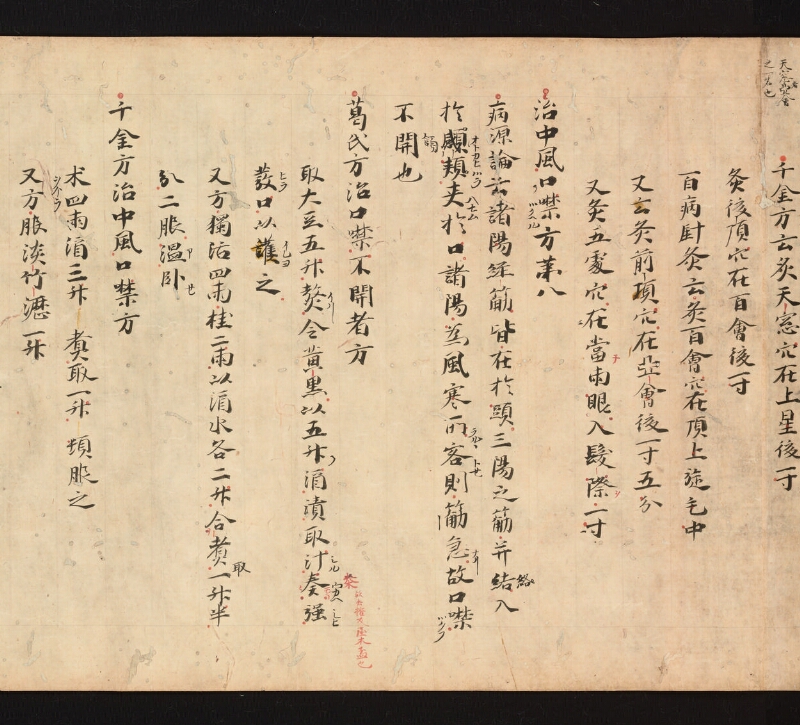 千金方云灸天窓穴在上星後一寸
灸後頂穴在百會後一寸
百病針灸云灸百會穴在頂上旋毛中
又云灸前頂穴在亞會後一寸五分
又灸五處穴在當両眼入髮際一寸
治中風口噤方第八
病源論云諸陽經筋皆在於頭三陽之筋并結入
於頷頬夹於口諸陽為風寒所客則筋急故口噤
不開也
葛氏方治口噤不開者方
取大豆五升熬令黄黒以五升酒漬取汁奏强
發口以灌之
又方獨活四両桂二両以酒水各二升合煑一升半
分二服温卧
千金方治中風口噤方
术四両酒三升煑取一升頓服之
又方服淡竹瀝一升